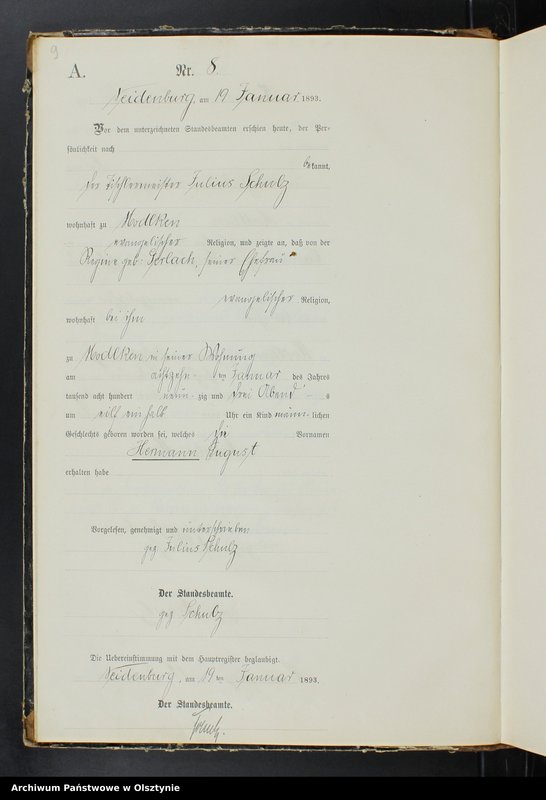 9
A.
Nr. 8.
Neidenburg, am 19 Januar 1893.
Vor dem unterzeichneten Standesbeamten erschien heute, der Per-
sönlichkeit nach
bekannt,
der Tischlermeister Julius Schulz
wohnhaft zu Modlken
evangelischer Religion, und zeigte an, daß von der
Regine geb. Gerlach, seiner Ehefrau
evangelischer Religion,
wohnhaft bei ihm
zu Modlken in seiner Wohnung
am achtzehn ten Januar des Jahres
tausend acht hundert neun- zig und drei Abend s
um eilf ein halb Uhr ein Kind männ- lichen
Geschlechts geboren worden sei, welches die Vornamen
Hermann August
erhalten habe
Vorgelesen, genehmigt und unterschrieben
gez. Julius Schulz
Der Standesbeamte.
gez. Schulz
Die Uebereinstimmung mit dem Hauptregister beglaubigt.
Neidenburg, am 19 ten Januar 1893.
Der Standesbeamte.
Schulz.
Archiwum Państwowe w Olsztynie